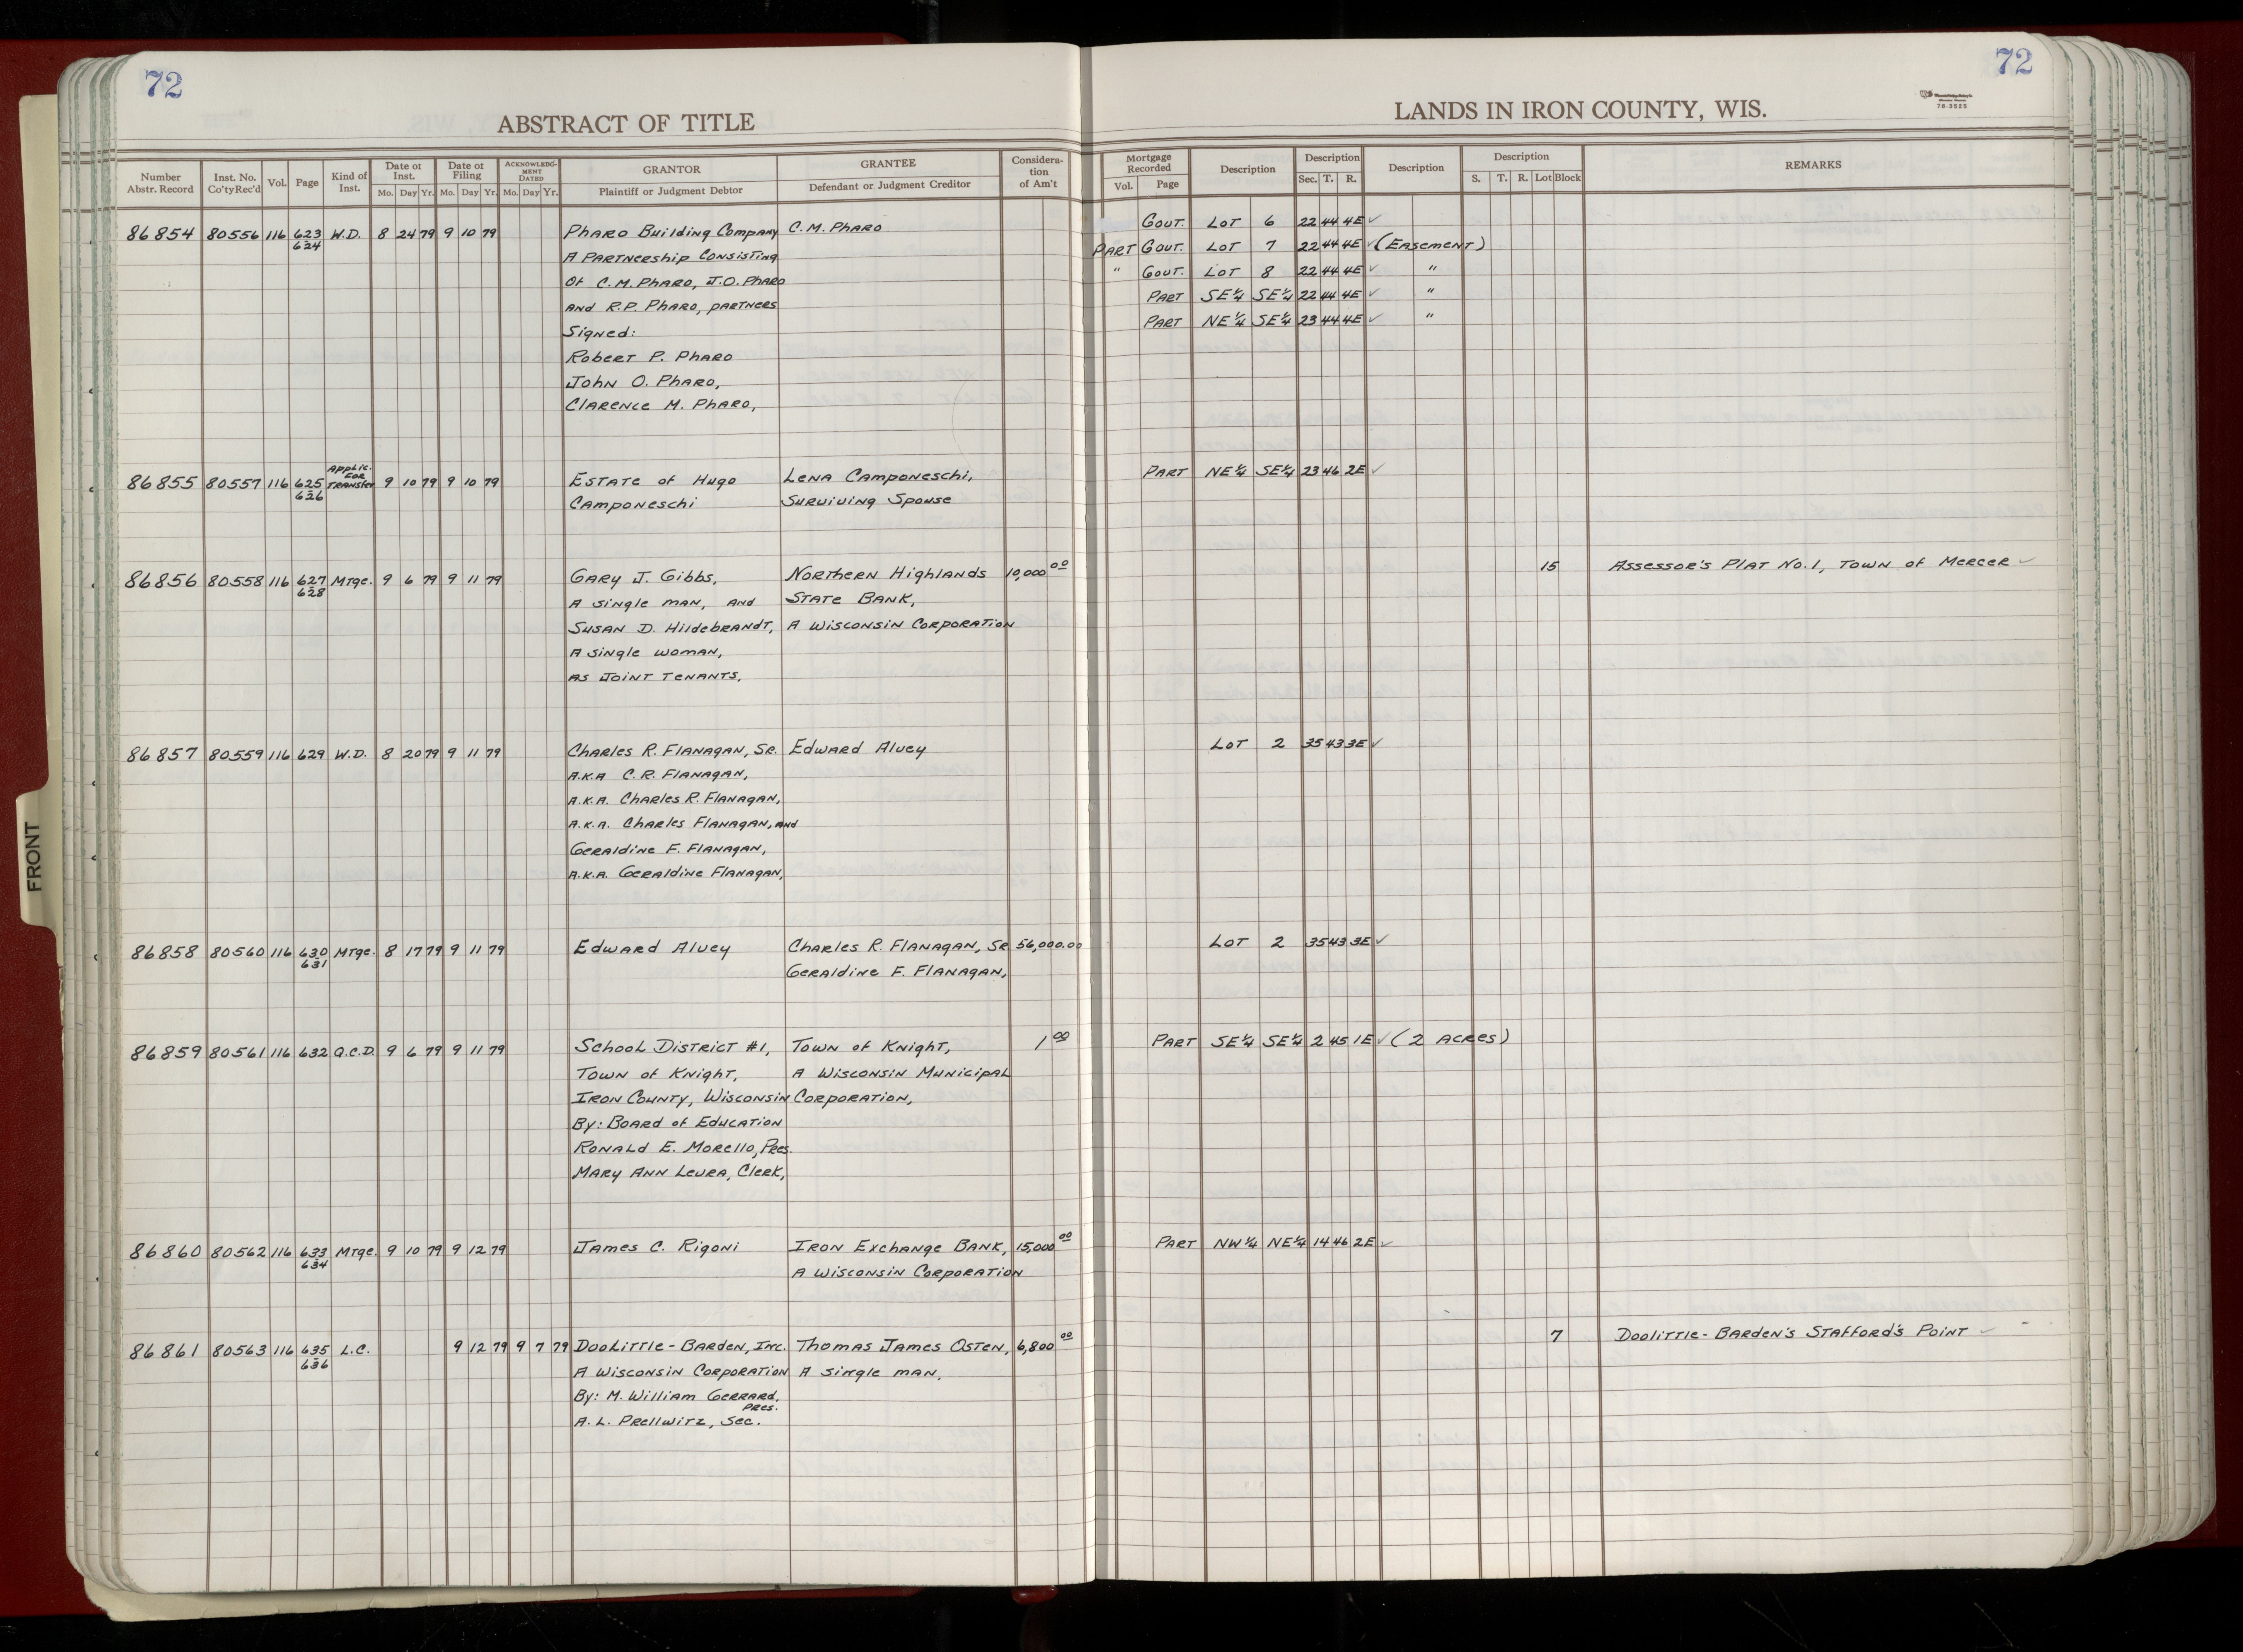 72
72
ABSTRACT OF TITLE
LANDS IN IRON COUNTY, WIS.
78-3525
Number Abstr. Record | Inst. No. Co'ty Rec'd | Vol. | Page | Kind of Inst. | Date of Inst. Mo. Day Yr. | Date of Filing Mo. Day Yr. | ACKNOWLEDG-MENT DATED Mo. Day Yr. | GRANTOR Plaintiff or Judgment Debtor | GRANTEE Defendant or Judgment Creditor | Considera-tion of Am't | Mortgage Recorded Vol. Page | Description | Description Sec. T. R. | Description | Description S. T. R. Lot Block | REMARKS
86854 80556 116 623 W.D. 8 24 79 9 10 79 Pharo Building Company C.M. Pharo Gout. Lot 6 22 44 4E ✓
624 A Partnership Consisting Part Gout. Lot 7 22 44 4E ✓ (Easement)
of C.M. Pharo, J.O. Pharo " Gout. Lot 8 22 44 4E ✓ "
and R.P. Pharo, partners Part SE¼ SE¼ 22 44 4E ✓ "
Signed: Part NE¼ SE¼ 23 44 4E ✓ "
Robert P. Pharo
John O. Pharo,
Clarence M. Pharo,
86855 80557 116 625 Applic. For Transfer 9 10 79 9 10 79 Estate of Hugo Lena Camponeschi, Part NE¼ SE¼ 23 46 2E ✓
626 Camponeschi Surviving Spouse
86856 80558 116 627 Mtge. 9 6 79 9 11 79 Gary J. Gibbs, Northern Highlands 10,000.00 15 Assessor's Plat No. 1, Town of Mercer ✓
628 A single man, and State Bank,
Susan D. Hildebrandt, A Wisconsin Corporation
A single woman,
as Joint Tenants,
86857 80559 116 629 W.D. 8 20 79 9 11 79 Charles R. Flanagan, Sr. Edward Alvey Lot 2 35 43 3E ✓
A.K.A C.R. Flanagan,
A.K.A. Charles R. Flanagan,
A.K.A. Charles Flanagan, and
Geraldine F. Flanagan,
A.K.A. Geraldine Flanagan,
86858 80560 116 630 Mtge. 8 17 79 9 11 79 Edward Alvey Charles R. Flanagan, Sr. 56,000.00 Lot 2 35 43 3E ✓
631 Geraldine F. Flanagan,
86859 80561 116 632 Q.C.D. 9 6 79 9 11 79 School District #1, Town of Knight, 1.00 Part SE¼ SE¼ 2 45 1E ✓ (2 Acres)
Town of Knight, A Wisconsin Municipal
Iron County, Wisconsin Corporation,
By: Board of Education
Ronald E. Morello, Pres.
Mary Ann Levra, Clerk,
86860 80562 116 633 Mtge. 9 10 79 9 12 79 James C. Rigoni Iron Exchange Bank, 15,000.00 Part NW¼ NE¼ 14 46 2E ✓
634 A Wisconsin Corporation
86861 80563 116 635 L.C. 9 12 79 9 7 79 Doolittle-Barden, Inc. Thomas James Osten, 6,800.00 7 Doolittle-Barden's Stafford's Point ✓
636 A Wisconsin Corporation A single man,
By: M. William Gerrard, Pres.
A. L. Prellwitz, Sec.
FRONT